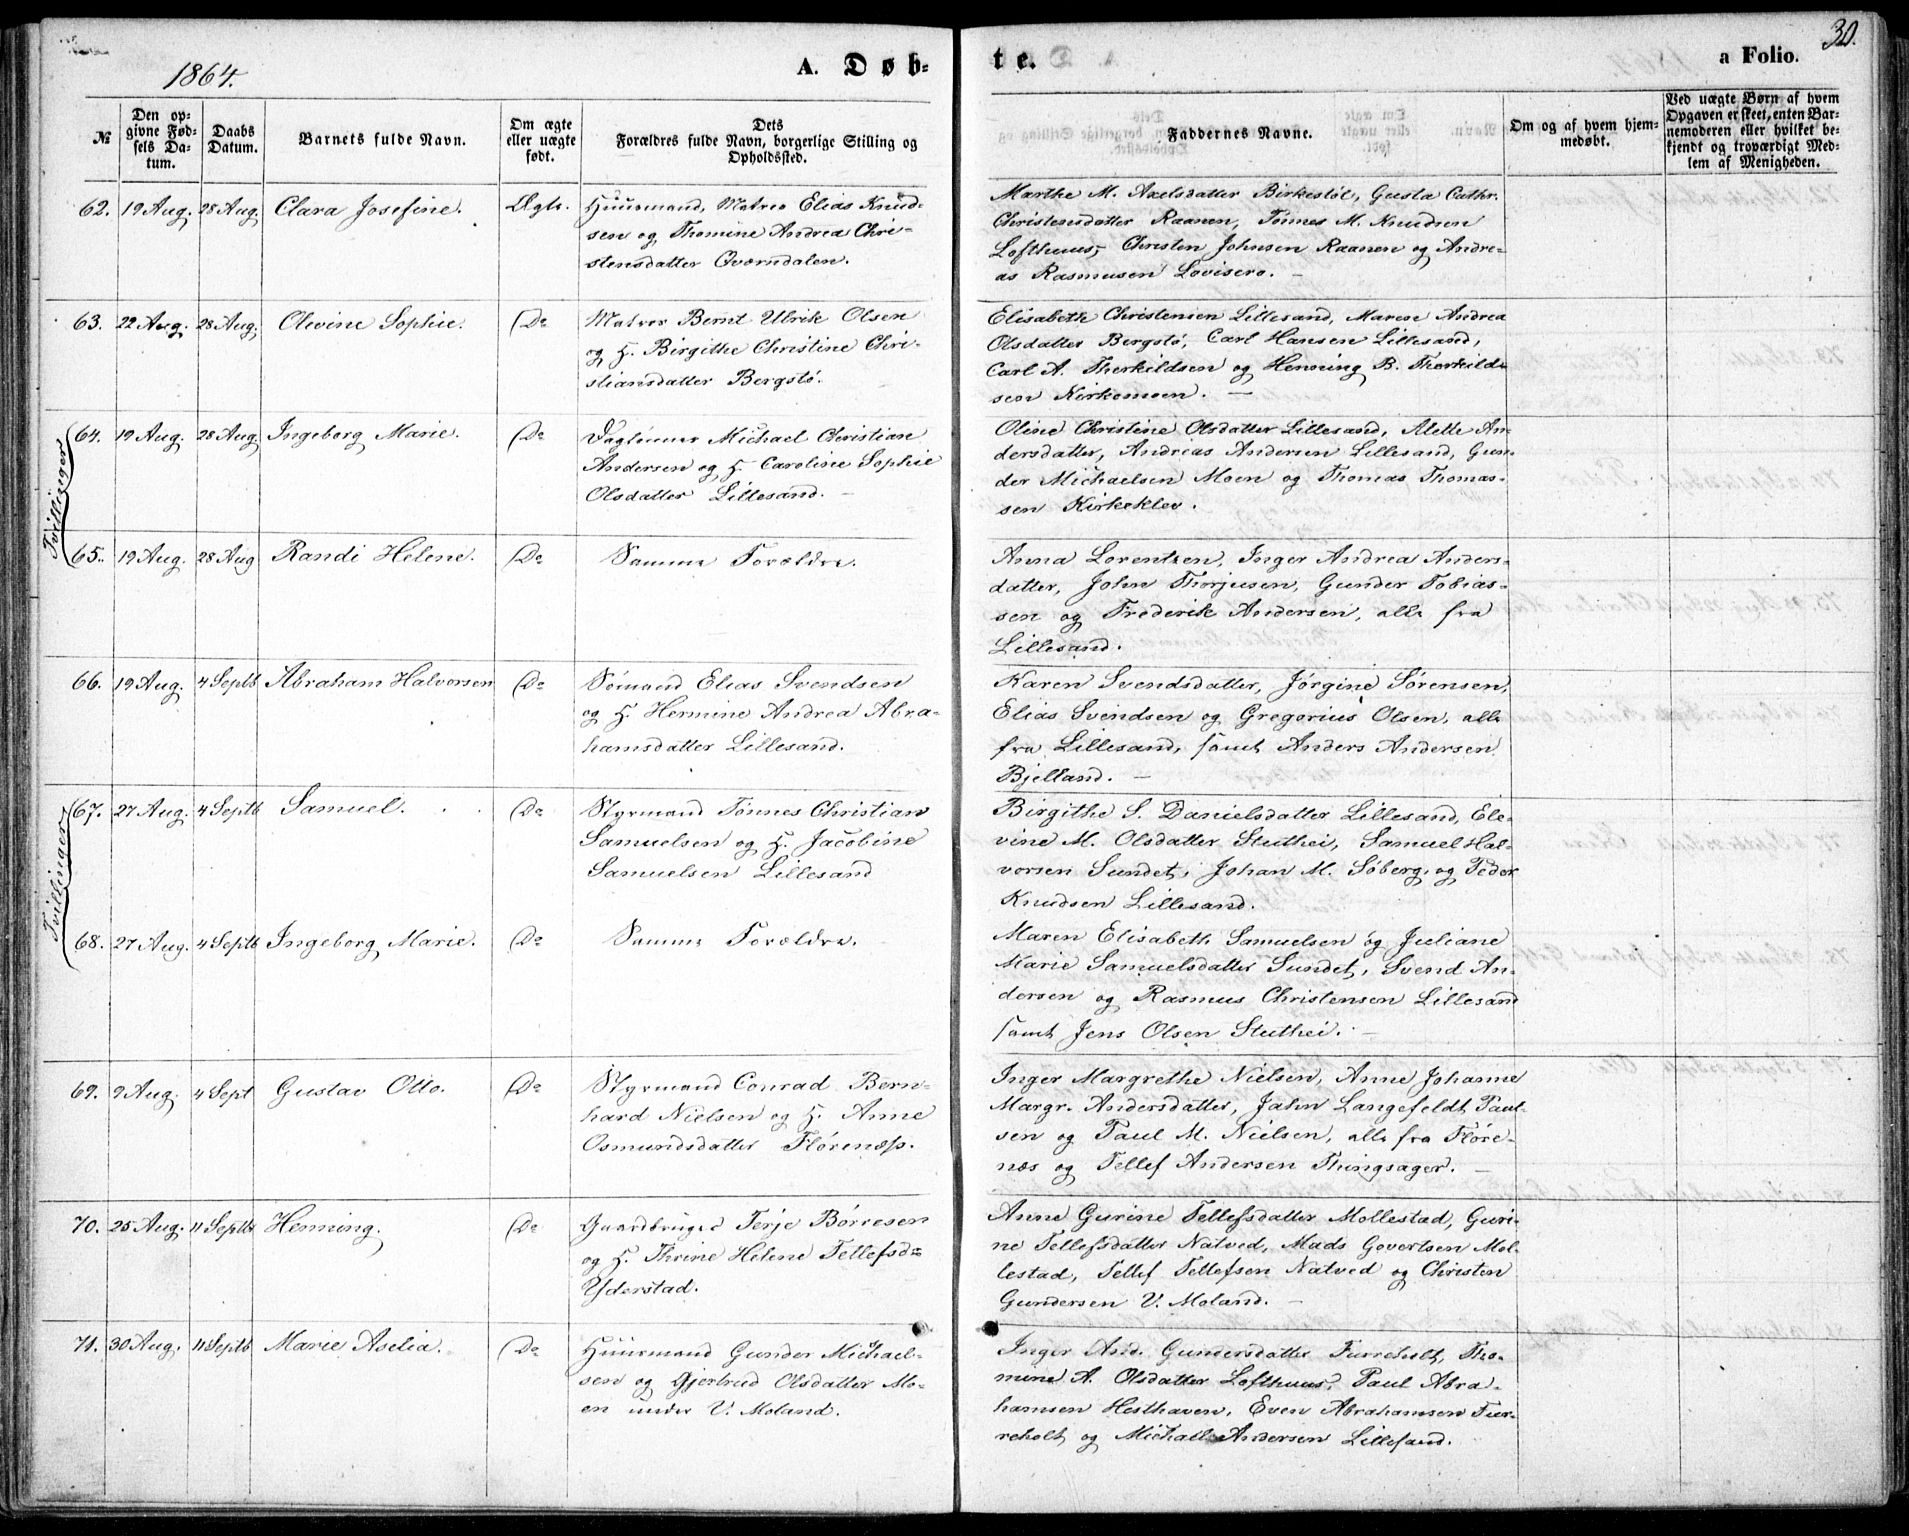 1864.
A. Døb-
te.
a Folio.
30.
№
Den op-
givne Fød-
sels Da-
tum.
Daabs
Datum.
Barnets fulde Navn.
Om ægte
eller uægte
født.
Dets
Forældres fulde Navn, borgerlige Stilling og
Opholdssted.
Faddernes Navne.
Om og af hvem hjem-
medøbt.
Ved uægte Børn af hvem
Opgaven er skeet, enten Bar-
nemoderen eller hvilket be-
kjendt og troværdigt Med-
lem af Menigheden.
62. 19 Aug. 28 Aug. Clara Josefine. Ægte.
Huusmand, Matros Elias Knud-
sen og Thomine Andrea Chri-
stensdatter Qværndalen.
Marthe M. Axelsdatter Birkestøl, Gusta Cathr.
Christensdatter Raanen, Tønnes M. Knudsen
Lofthuus, Christen Johnsen Raanen og Andre-
as Rasmusen Lovisero.
63. 22 Aug. 28 Aug. Olevine Sophie. Do
Matros Bernt Ulrik Olsen
og H. Birgithe Christine Chri-
stiansdatter Bergstø.
Elisabeth Christensen Lillesand, Maren Andrea
Olsdatter Bergstø, Carl Hansen Lillesand,
Carl A. Therkildsen og Henning B. Therkild-
sen Kirkemoen.
Tvillinger
64. 19 Aug. 28 Aug. Ingeborg Marie. Do
Daglønner Michael Christian
Andersen og H. Caroline Sophie
Olsdatter Lillesand.
Oline Christine Olsdatter Lillesand, Alette An-
dersdatter, Andreas Andersen Lillesand, Gun-
der Michaelsen Moen og Thomas Thomas-
sen Kirkeklev.
65. 19 Aug. 28 Aug Randi Helene. Do
Samme Forældre.
Anna Lorentzen, Inger Andrea Anders-
datter, John Thorjusen, Gunder Tobias-
sen og Frederik Andersen, alle fra
Lillesand.
66. 19 Aug. 4 Septb Abraham Halvorsen Do
Sømand Elias Svendsen
og H. Hermine Andrea Abra-
hamsdatter Lillesand.
Karen Svendsdatter, Jørgine Sørensen,
Elias Svendsen og Gregorius Olsen, alle
fra Lillesand, samt Anders Andersen
Bjelland.
Tvillinger
67. 27 Aug. 4 Septb Samuel. Do
Styrmand Tønnes Christian
Samuelsen og H. Jacobine
Samuelsen Lillesand
Birgithe S. Danielsdatter Lillesand, Ele-
vine M. Olsdatter Stuthei, Samuel Hal-
vorsen Sundet, Johan M. Søberg, og Peder
Knudsen Lillesand.
68. 27 Aug. 4 Septb Ingeborg Marie. Do
Samme Forældre.
Maren Elisabeth Samuelsen og Juliane
Marie Samuelsdatter Sundet, Svend An-
dersen og Rasmus Christensen Lillesand
samt Jens Olsen Stuthei.
69. 9 Aug. 4 Sept Gustav Otto. Do
Styrmand Conrad Bern-
hard Nielsen og H. Anne
Osmundsdatter Flørenæs.
Inger Margrethe Nielsen, Anne Johanne
Margr. Andersdatter, Jahn Langefeldt Paul-
sen og Paul M. Nielsen, alle fra Fløre-
næs og Tellef Andersen Thingsager.
70. 25 Aug. 11 Septbr Henning. Do
Gaardbruger Terje Børresen
og H. Thrine Helene Tellefsdr
Yderstad.
Anne Gurine Tellefsdatter Mollestad, Guri-
ne Tellefsdatter Natved, Mads Govertsen Mol-
lestad, Tellef Tellefsen Natved og Christen
Gundersen V. Moland.
71. 30 Aug. 11 Septb Marie Aselia. Do
Huusmand Gunder Michael-
sen og Gjertrud Olsdatter Mo-
en under V. Moland.
Inger And. Gundersdatter Furreholt, Tho-
mine A. Olsdatter Lofthuus, Paul Abra-
hamsen Hesthaven, Even Abrahamsen Fur-
reholt og Michael Andersen Lillesand.